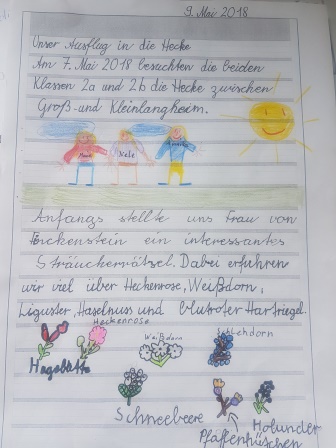 9. Mai 2018
Unser Ausflug in die Hecke
Am 7. Mai 2018 besuchten die beiden
Klassen 2a und 2b die Hecke zwischen
Groß- und Kleinlangheim.
Anfangs stellte uns Frau von
ein interessantes
Sträucherrätsel. Dabei erfuhren
wir viel über Heckenrose, Weißdorn,
Liguster, Haselnuss und blutroter Hartriegel.
Heckenrose
Weißdorn
Schlehdorn
Hagebutte
Schneebeere
Holunder
Pfaffenhütchen